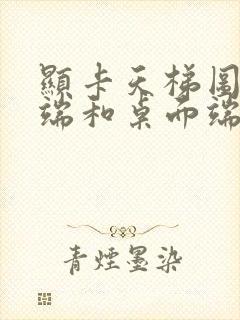 顯卡天梯圖
端和桌面端
青煙墨染